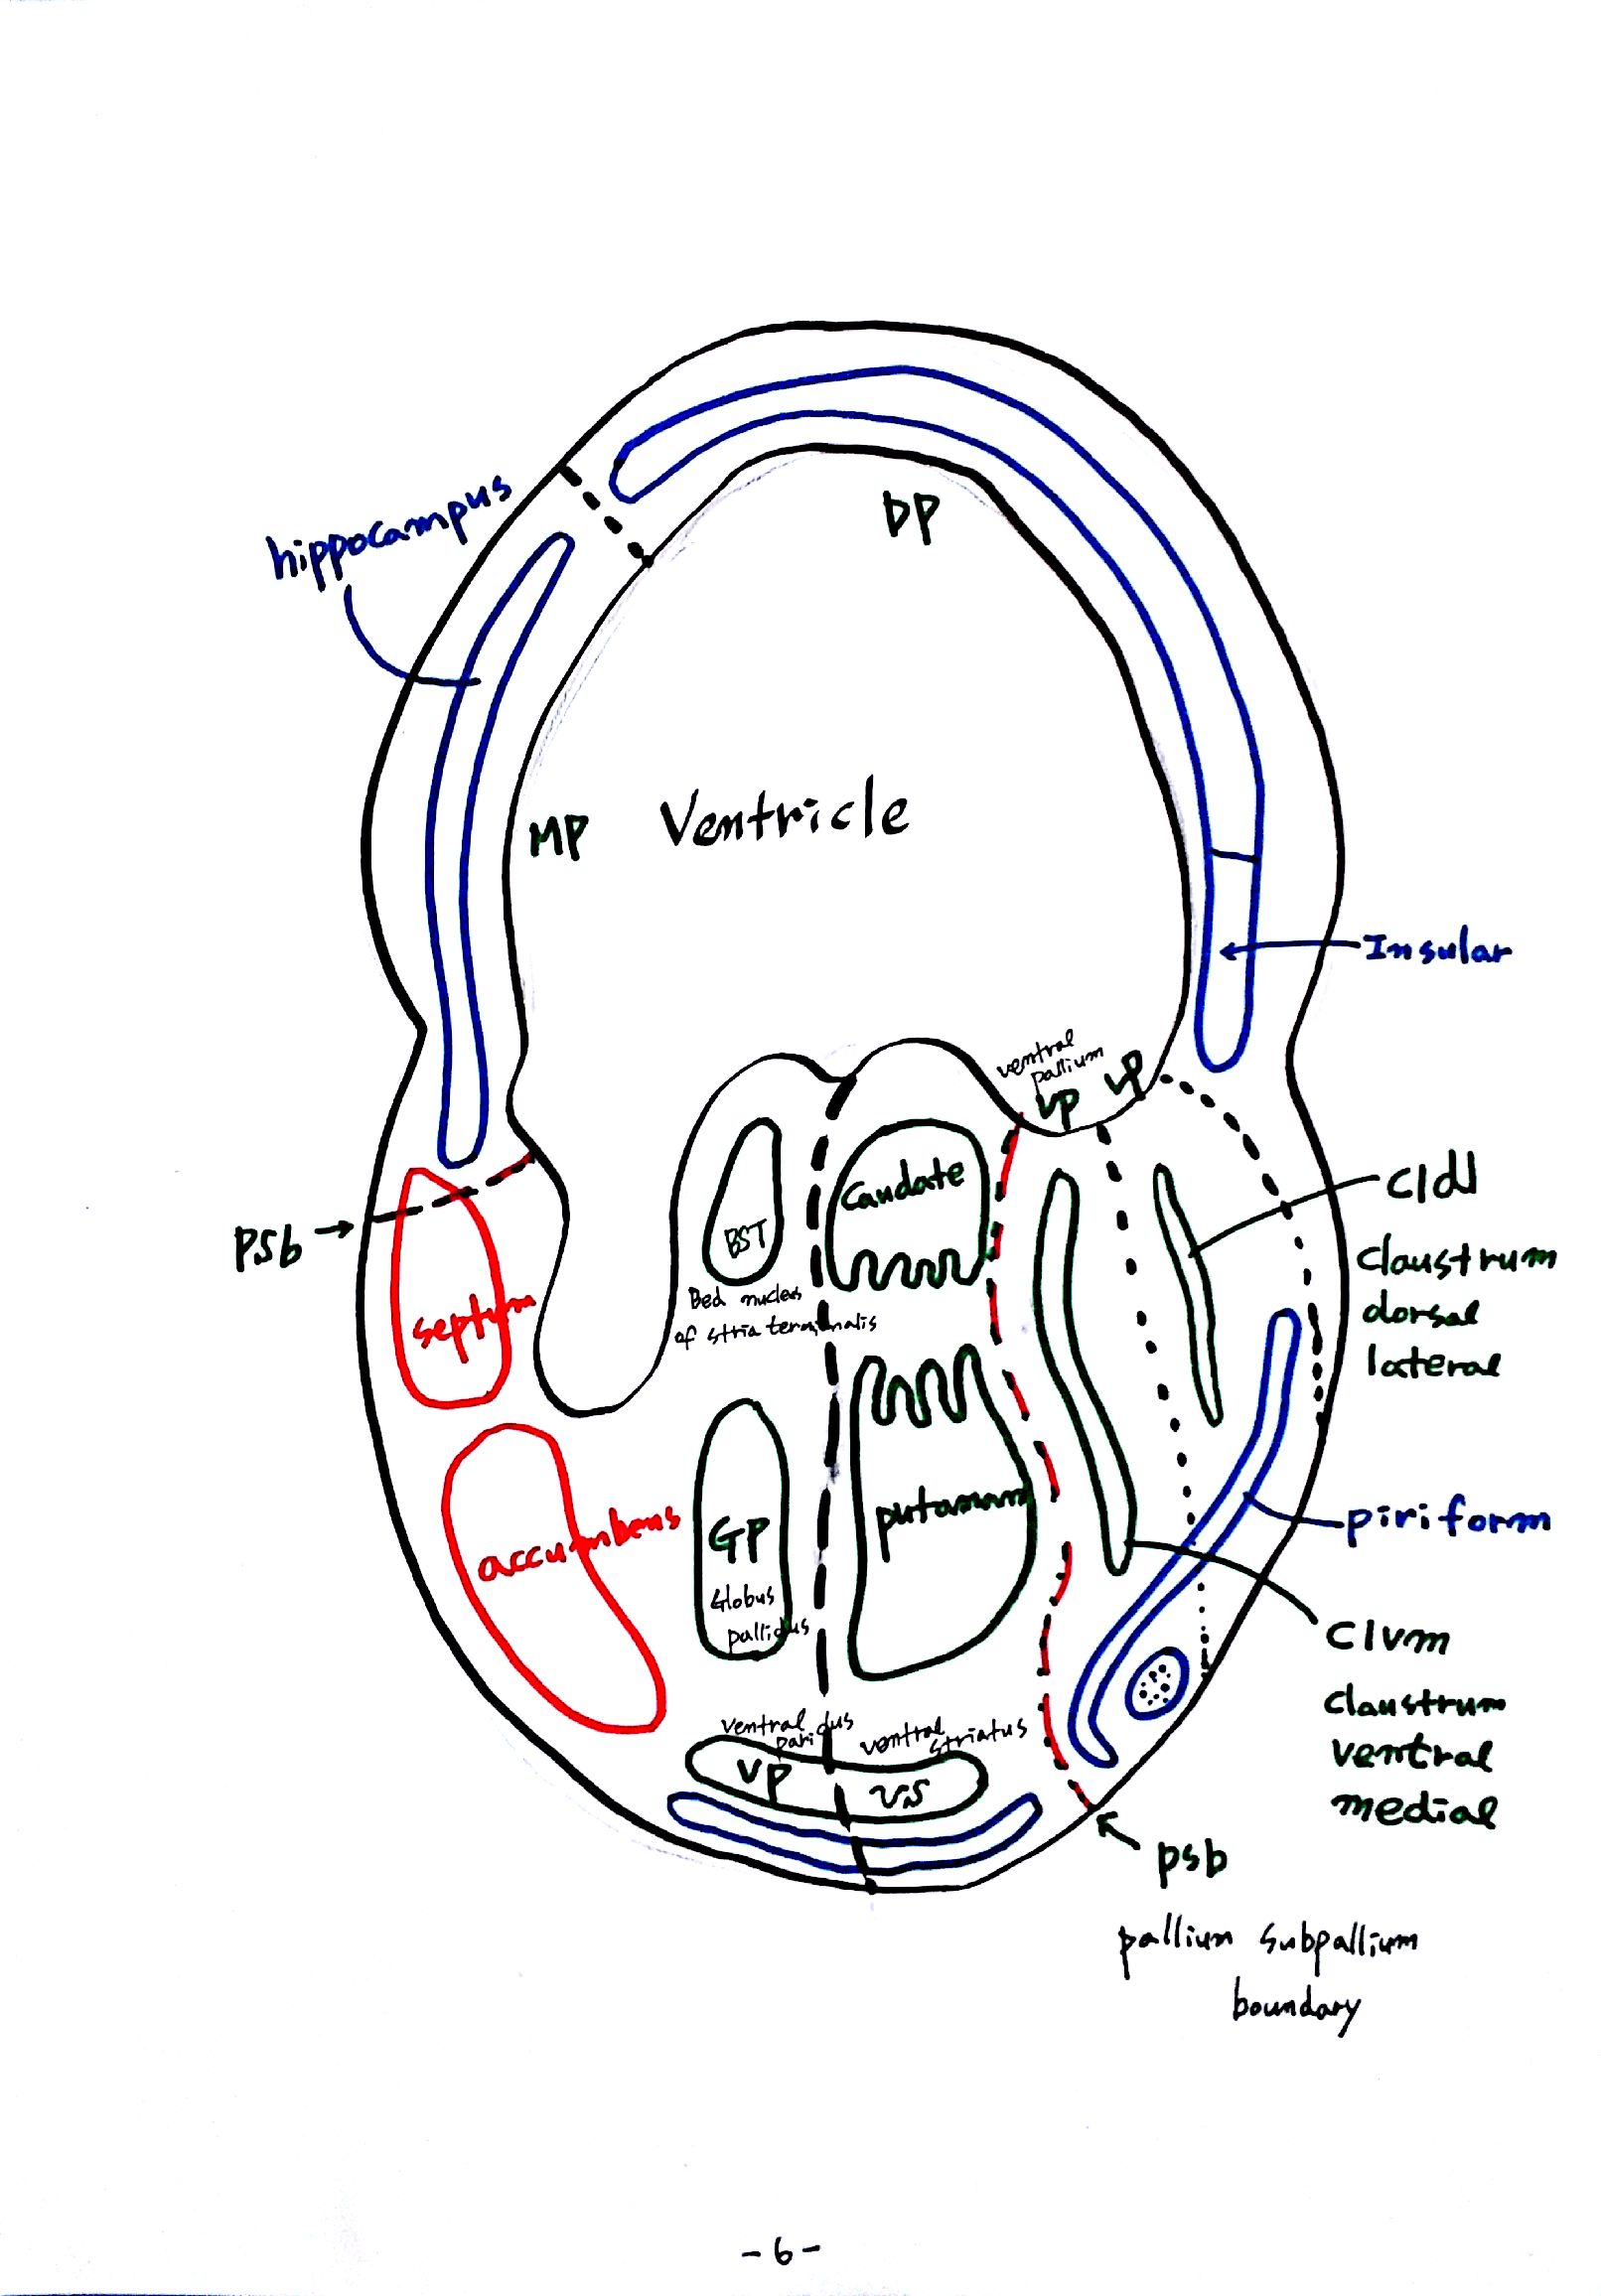 DP
hippocampus
MP
Ventricle
Insular
ventral
pallium
VP
VP
Caudate
BST
Bed nucleus
of stria terminalis
cldl
claustrum
dorsal
lateral
psb
septum
accumbens
GP
Globus
pallidus
putamam
piriform
clvm
claustrum
ventral
medial
ventral
paridus
ventral
striatus
VP
VS
psb
pallium subpallium
boundary
-6-